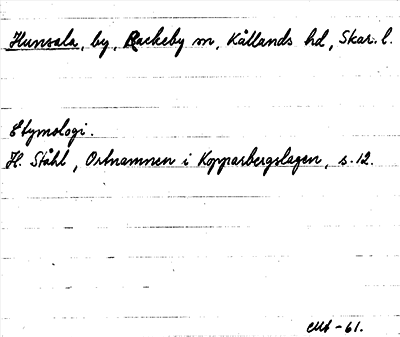 Hunsala, by, Rackeby sn, Kållands hd, Skar. l.
Etymologi.
H. Ståhl, Ortnamnen i Kopparbergslagen, s. 12.
-61.